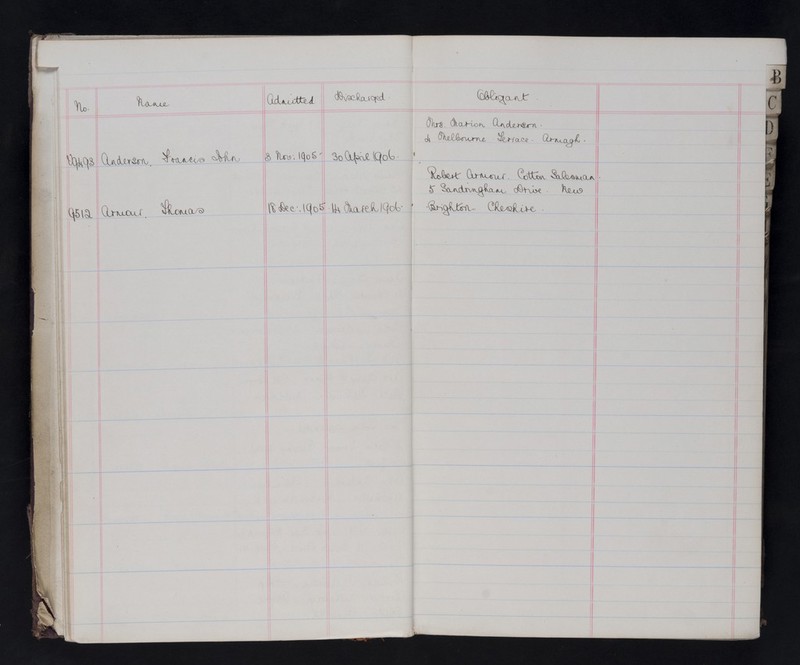 No. Name Admitted Discharged Obligant
Mrs. Marion Anderson.
4 Melbourne Terrace. Armagh.
9493 Anderson, Francis John 3 Nov. 1905 30 April 1906.
Robert Armour. Cotton Salesman.
5 Sandringham Drive. New
9512 Armour, Thomas 18 Dec. 1905 14 March 1906 Brighton. Cheshire.
B
C
D